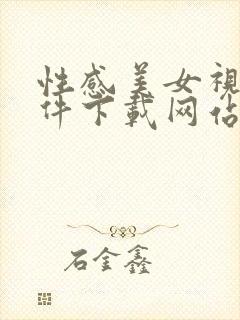 性感美女視
件下載网佔
石金鑫